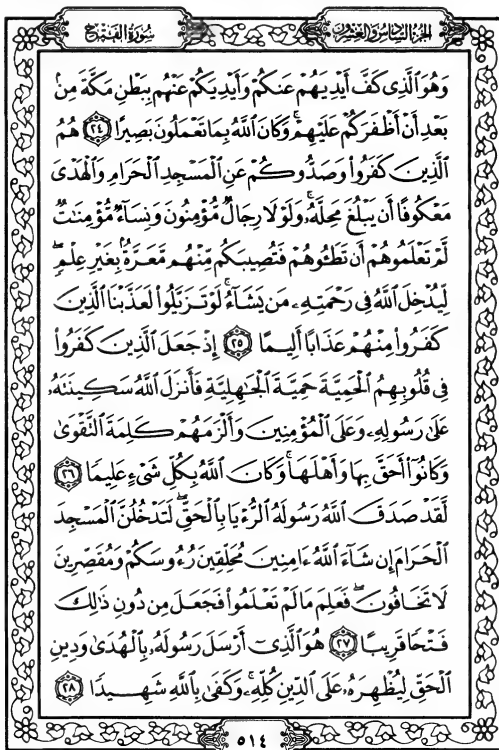 الجزء السادس والعشرون
سورة الفتح
وَهُوَ ٱلَّذِى كَفَّ أَيْدِيَهُمْ عَنكُمْ وَأَيْدِيَكُمْ عَنْهُم بِبَطْنِ مَكَّةَ مِنۢ
بَعْدِ أَنْ أَظْفَرَكُمْ عَلَيْهِمْ ۚ وَكَانَ ٱللَّهُ بِمَا تَعْمَلُونَ بَصِيرًا ٢٤ هُمُ
ٱلَّذِينَ كَفَرُوا۟ وَصَدُّوكُمْ عَنِ ٱلْمَسْجِدِ ٱلْحَرَامِ وَٱلْهَدْىَ
مَعْكُوفًا أَن يَبْلُغَ مَحِلَّهُۥ ۚ وَلَوْلَا رِجَالٌ مُّؤْمِنُونَ وَنِسَآءٌ مُّؤْمِنَٰتٌ
لَّمْ تَعْلَمُوهُمْ أَن تَطَـُٔوهُمْ فَتُصِيبَكُم مِّنْهُم مَّعَرَّةٌۢ بِغَيْرِ عِلْمٍ ۖ
لِّيُدْخِلَ ٱللَّهُ فِى رَحْمَتِهِۦ مَن يَشَآءُ ۚ لَوْ تَزَيَّلُوا۟ لَعَذَّبْنَا ٱلَّذِينَ
كَفَرُوا۟ مِنْهُمْ عَذَابًا أَلِيمًا ٢٥ إِذْ جَعَلَ ٱلَّذِينَ كَفَرُوا۟
فِى قُلُوبِهِمُ ٱلْحَمِيَّةَ حَمِيَّةَ ٱلْجَٰهِلِيَّةِ فَأَنزَلَ ٱللَّهُ سَكِينَتَهُۥ
عَلَىٰ رَسُولِهِۦ وَعَلَى ٱلْمُؤْمِنِينَ وَأَلْزَمَهُمْ كَلِمَةَ ٱلتَّقْوَىٰ
وَكَانُوٓا۟ أَحَقَّ بِهَا وَأَهْلَهَا ۚ وَكَانَ ٱللَّهُ بِكُلِّ شَىْءٍ عَلِيمًا ٢٦
لَّقَدْ صَدَقَ ٱللَّهُ رَسُولَهُ ٱلرُّءْيَا بِٱلْحَقِّ ۖ لَتَدْخُلُنَّ ٱلْمَسْجِدَ
ٱلْحَرَامَ إِن شَآءَ ٱللَّهُ ءَامِنِينَ مُحَلِّقِينَ رُءُوسَكُمْ وَمُقَصِّرِينَ
لَا تَخَافُونَ ۖ فَعَلِمَ مَا لَمْ تَعْلَمُوا۟ فَجَعَلَ مِن دُونِ ذَٰلِكَ
فَتْحًا قَرِيبًا ٢٧ هُوَ ٱلَّذِىٓ أَرْسَلَ رَسُولَهُۥ بِٱلْهُدَىٰ وَدِينِ
ٱلْحَقِّ لِيُظْهِرَهُۥ عَلَى ٱلدِّينِ كُلِّهِۦ ۚ وَكَفَىٰ بِٱللَّهِ شَهِيدًا ٢٨
٥١٤